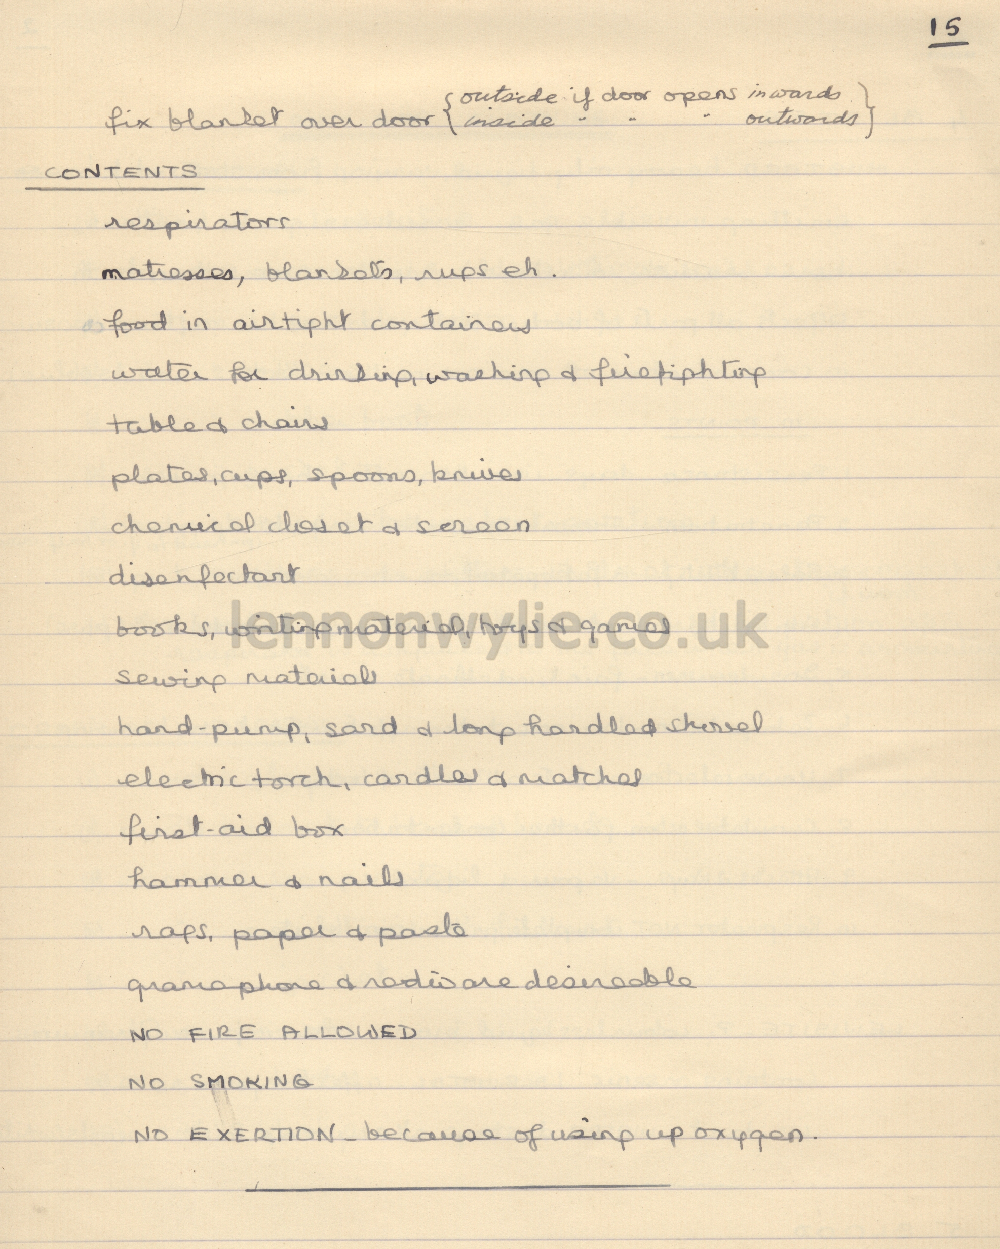 15
fix blanket over door { outside if door opens inwards }
{ inside " " " outwards }
CONTENTS
respirators
matresses, blankets, rugs etc.
food in airtight containers
water for drinking, washing & firefighting
table & chairs
plates, cups, spoons, knives
chemical closet & screen
disenfectant
books, writing material, toys & games
lennonwylie.co.uk
sewing materials
hand-pump, sand & long handled shovel
electric torch, candles & matches
first-aid box
hammer & nails
rags, paper & paste
gramaphone & radio are desireable
NO FIRE ALLOWED
NO SMOKING
NO EXERTION - because of using up oxygen.